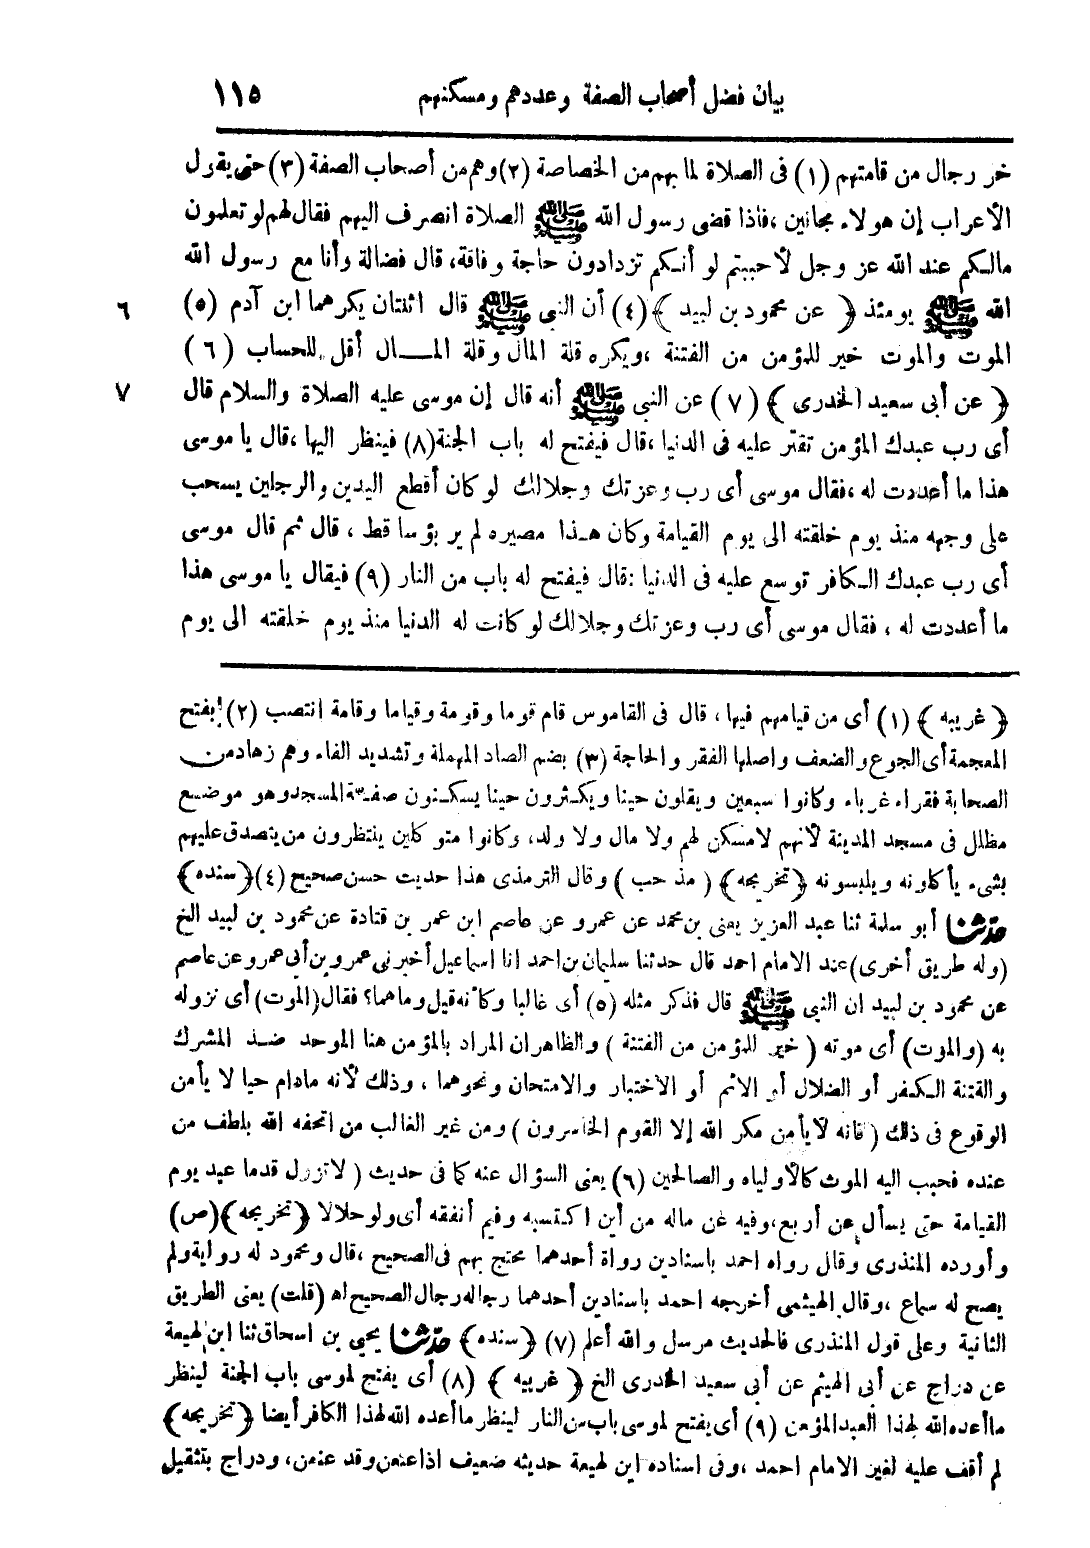 بيان فضل أصحاب الصفة وعددهم ومسكنهم ١١٥
خر رجال من قامتهم (١) فى الصلاة لما بهم من الخصاصة (٢) وهم من أصحاب الصفة (٣) حتى يقول
الأعراب إن هولاء مجانين ، فاذا قضى رسول الله ﷺ الصلاة انصرف اليهم فقال لهم لو تعلمون
مالكم عند الله عز وجل لأحببتم لو أنكم تزدادون حاجة وفاقة، قال فضالة وأنا مع رسول الله
الله ﷺ يومئذ ﴿ عن محمود بن لبيد ﴾ (٤) أن النبى ﷺ قال اثنتان يكرهما ابن آدم (٥) ٦
الموت والموت خير للمؤمن من الفتنة ، ويكره قلة المال وقلة المـــال أقل للحساب (٦)
﴿ عن أبى سعيد الخدرى ﴾ (٧) عن النبى ﷺ أنه قال إن موسى عليه الصلاة والسلام قال ٧
أى رب عبدك المؤمن تقتر عليه فى الدنيا ، قال فيفتح له باب الجنة (٨) فينظر اليها ، قال يا موسى
هذا ما أعددت له ، فقال موسى أى رب وعزتك وجلالك لو كان أقطع اليدين والرجلين يسحب
على وجهه منذ يوم خلقته الى يوم القيامة وكان هـذا مصيره لم ير بؤسا قط ، قال ثم قال موسى
أى رب عبدك الـكافر توسع عليه فى الدنيا : قال فيفتح له باب من النار (٩) فيقال يا موسى هذا
ما أعددت له ، فقال موسى أى رب وعزتك وجلالك لو كانت له الدنيا منذ يوم خلقته الى يوم
﴿ غريبه ﴾ (١) أى من قيامهم فيها ، قال فى القاموس قام قوما وقومة وقياما وقامة انتصب (٢) بفتح
المعجمة أى الجوع والضعف واصلها الفقر والحاجة (٣) بضم الصاد المهملة وتشديد الفاء وهم زهاد من
الصحابة فقراء غرباء وكانوا سبعين ويقلون حينا ويكثرون حينا يسكنون صفة المسجد وهو موضع
مظلل فى مسجد المدينة لأنهم لامسكن لهم ولا مال ولا ولد، وكانوا متوكلين ينتظرون من يتصدق عليهم
بشىء يأكلونه ويلبسونه ﴿ تخريجه ﴾ ( مذ حب ) وقال الترمذى هذا حديث حسن صحيح (٤) ﴿ سنده ﴾
حدثنا أبو سلمة ثنا عبد العزيز يعنى بن محمد عن عمرو عن عاصم ابن عمر بن قتادة عن محمود بن لبيد الخ
(وله طريق أخرى) عند الامام احمد قال حدثنا سليمان بن احمد انا اسماعيل أخبرنى عمرو بن أبى عمرو عن عاصم
عن محمود بن لبيد ان النبى ﷺ قال فذكر مثله (٥) أى غالبا وكأنه قيل وماهما؟ فقال (الموت) أى نزوله
به (والموت) أى موته ( خير للمؤمن من الفتنة ) والظاهر ان المراد بالمؤمن هنا الموحد ضـد المشرك
والفتنة الـكـفر أو الضلال أو الاثم أو الاختبار والامتحان ونحوهما ، وذلك لأنه مادام حيا لا يأمن
الوقوع فى ذلك ( فانه لا يأمن مكر الله إلا القوم الخاسرون ) ومن غير الغالب من اتحفه الله بلطف من
عنده فحبب اليه الموت كالأولياء والصالحين (٦) يعنى السؤال عنه كما فى حديث ( لا تزول قدما عبد يوم
القيامة حتى يسأل عن أربع، وفيه عن ماله من أين اكتسبه وفيم أنفقه أى ولو حلالا ﴿ تخريجه ﴾ (ص)
وأورده المنذرى وقال رواه احمد باسنادين رواة أحدهما محتج بهم فى الصحيح ، قال ومحمود له رواية ولم
يصح له سماع ، وقال الهيثمى أخرجه احمد باسنادين أحدهما رجاله رجال الصحيح اه (قلت) يعنى الطريق
الثانية وعلى قول المنذرى فالحديث مرسل والله أعلم (٧) ﴿ سنده ﴾ حدثنا يحيى بن اسحاق ثنا ابن لهيعة
عن دراج عن أبى الهيثم عن أبى سعيد الخدرى الخ ﴿ غريبه ﴾ (٨) أى يفتح لموسى باب الجنة لينظر
ما أعده الله لهذا العبد المؤمن (٩) أى يفتح لموسى باب من النار لينظر ما أعده الله لهذا الكافر أيضا ﴿ تخريجه ﴾
لم أقف عليه لغير الامام احمد ، وفى اسناده ابن لهيعة حديثه ضعيف اذا عنعن وقد عنعن، ودراج بتثقيل